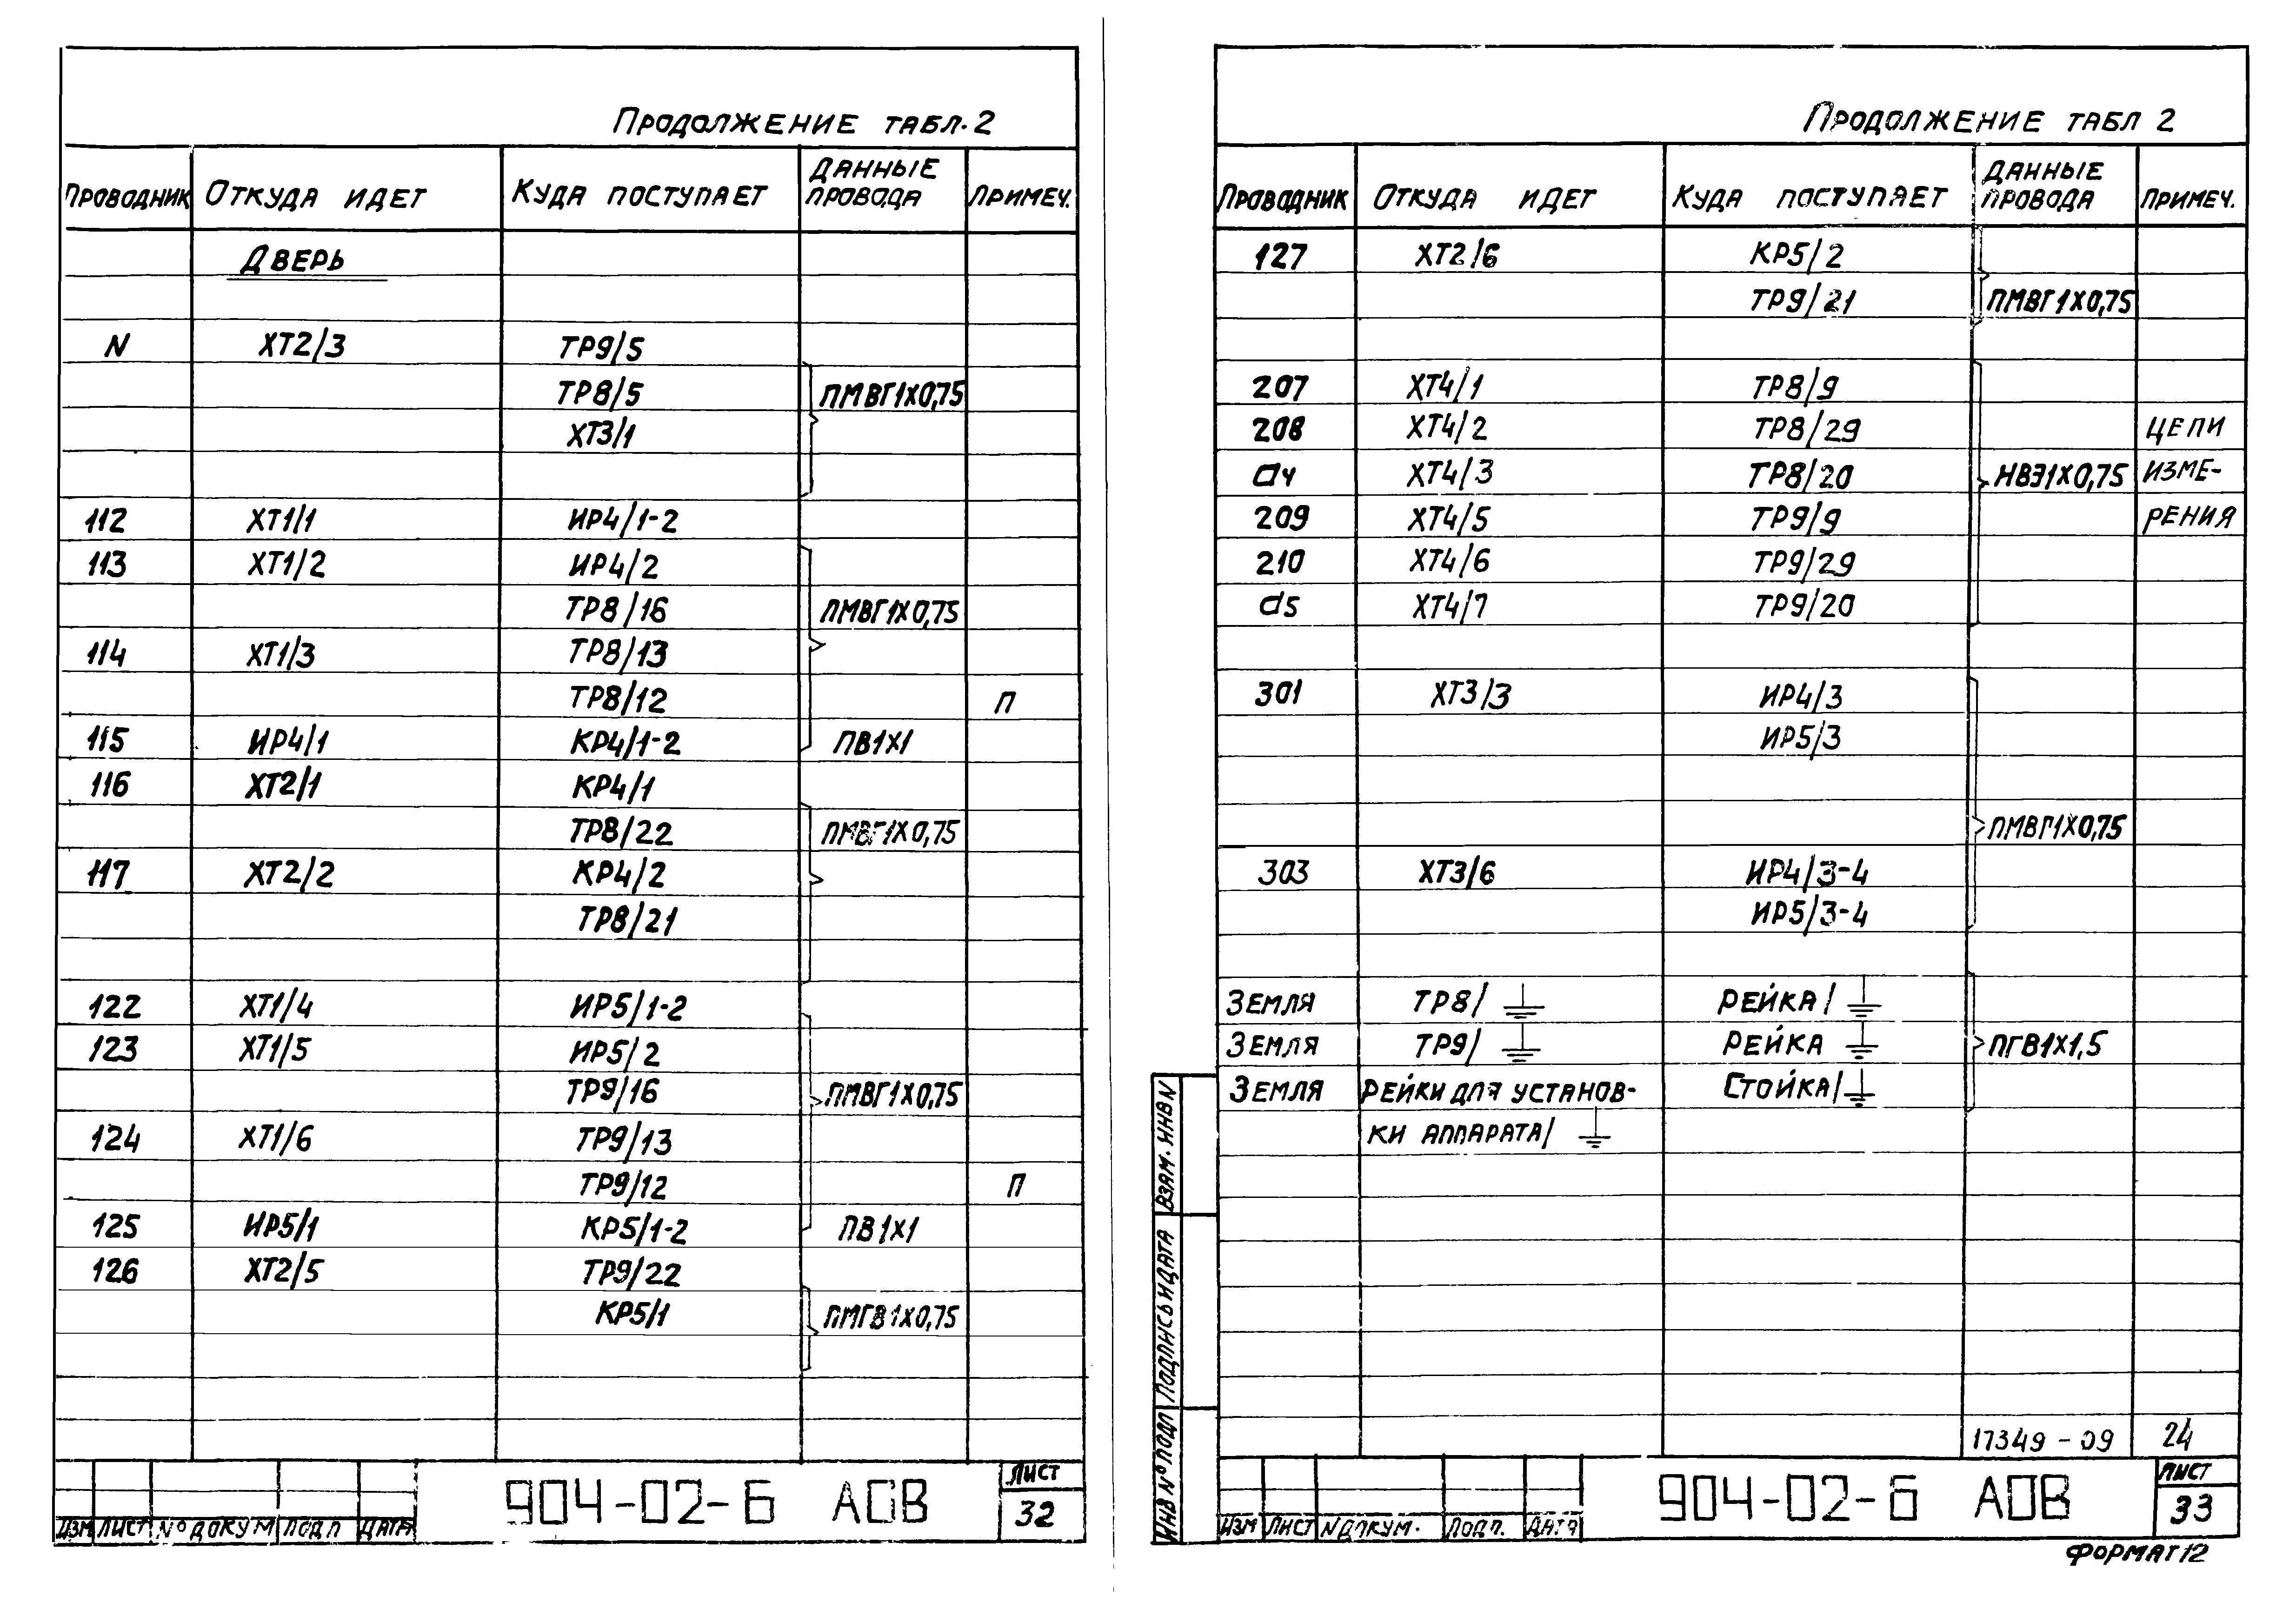 Продолжение табл. 2
Проводник Откуда идет Куда поступает Данные провода Примеч.
Дверь
N ХТ2/3 ТР9/5
ТР8/5 ПМВГ1Х0,75
ХТ3/1
112 ХТ1/1 ИР4/1-2
113 ХТ1/2 ИР4/2
ТР8/16 ПМВГ1Х0,75
114 ХТ1/3 ТР8/13
ТР8/12 П
115 ИР4/1 КР4/1-2 ПВ1Х1
116 ХТ2/1 КР4/1
ТР8/22 ПМВГ1Х0,75
117 ХТ2/2 КР4/2
ТР8/21
122 ХТ1/4 ИР5/1-2
123 ХТ1/5 ИР5/2
ТР9/16 ПМВГ1Х0,75
124 ХТ1/6 ТР9/13
ТР9/12 П
125 ИР5/1 КР5/1-2 ПВ1Х1
126 ХТ2/5 ТР9/22
КР5/1 ПМГВ1Х0,75
Изм Лист № докум Подп Дата
904-02-6 АОВ
Лист
32
Продолжение табл 2
Проводник Откуда идет Куда поступает Данные провода Примеч.
127 ХТ2/6 КР5/2
ТР9/21 ПМВГ1Х0,75
207 ХТ4/1 ТР8/9
208 ХТ4/2 ТР8/29 цепи
а4 ХТ4/3 ТР8/20 НВЭ1Х0,75 изме-
209 ХТ4/5 ТР9/9 рения
210 ХТ4/6 ТР9/29
а5 ХТ4/7 ТР9/20
301 ХТ3/3 ИР4/3
ИР5/3
ПМВГ1Х0,75
303 ХТ3/6 ИР4/3-4
ИР5/3-4
Земля ТР8/ ⏚ Рейка/ ⏚
Земля ТР9/ ⏚ Рейка ⏚ ПГВ1Х1,5
Земля Рейки для установ- Стойка/ ⏚
ки аппарата/ ⏚
17349-09 24
Взам. инв N
Подпись и дата
Инв № подл
Изм Лист N докум. Подп. Дата
904-02-6 АОВ
Лист
33
Формат 12